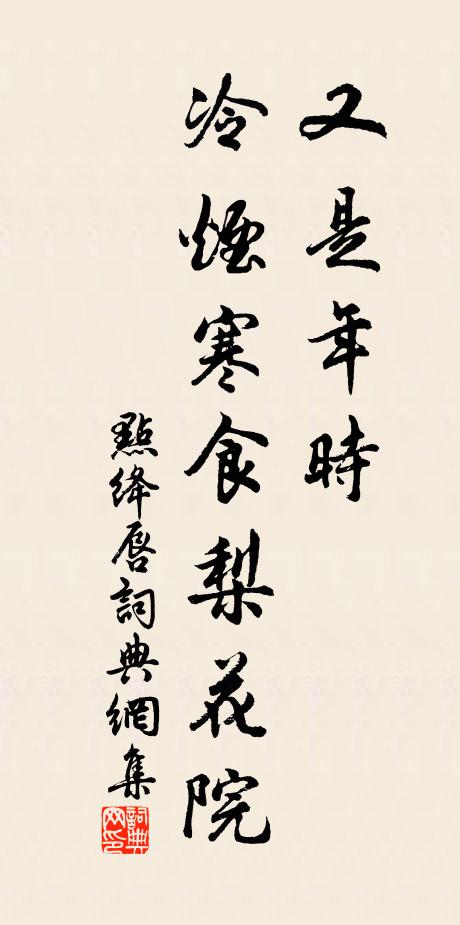 又是年時
冷煙寒食梨花院
點絳唇詞典網集
詞典
网印